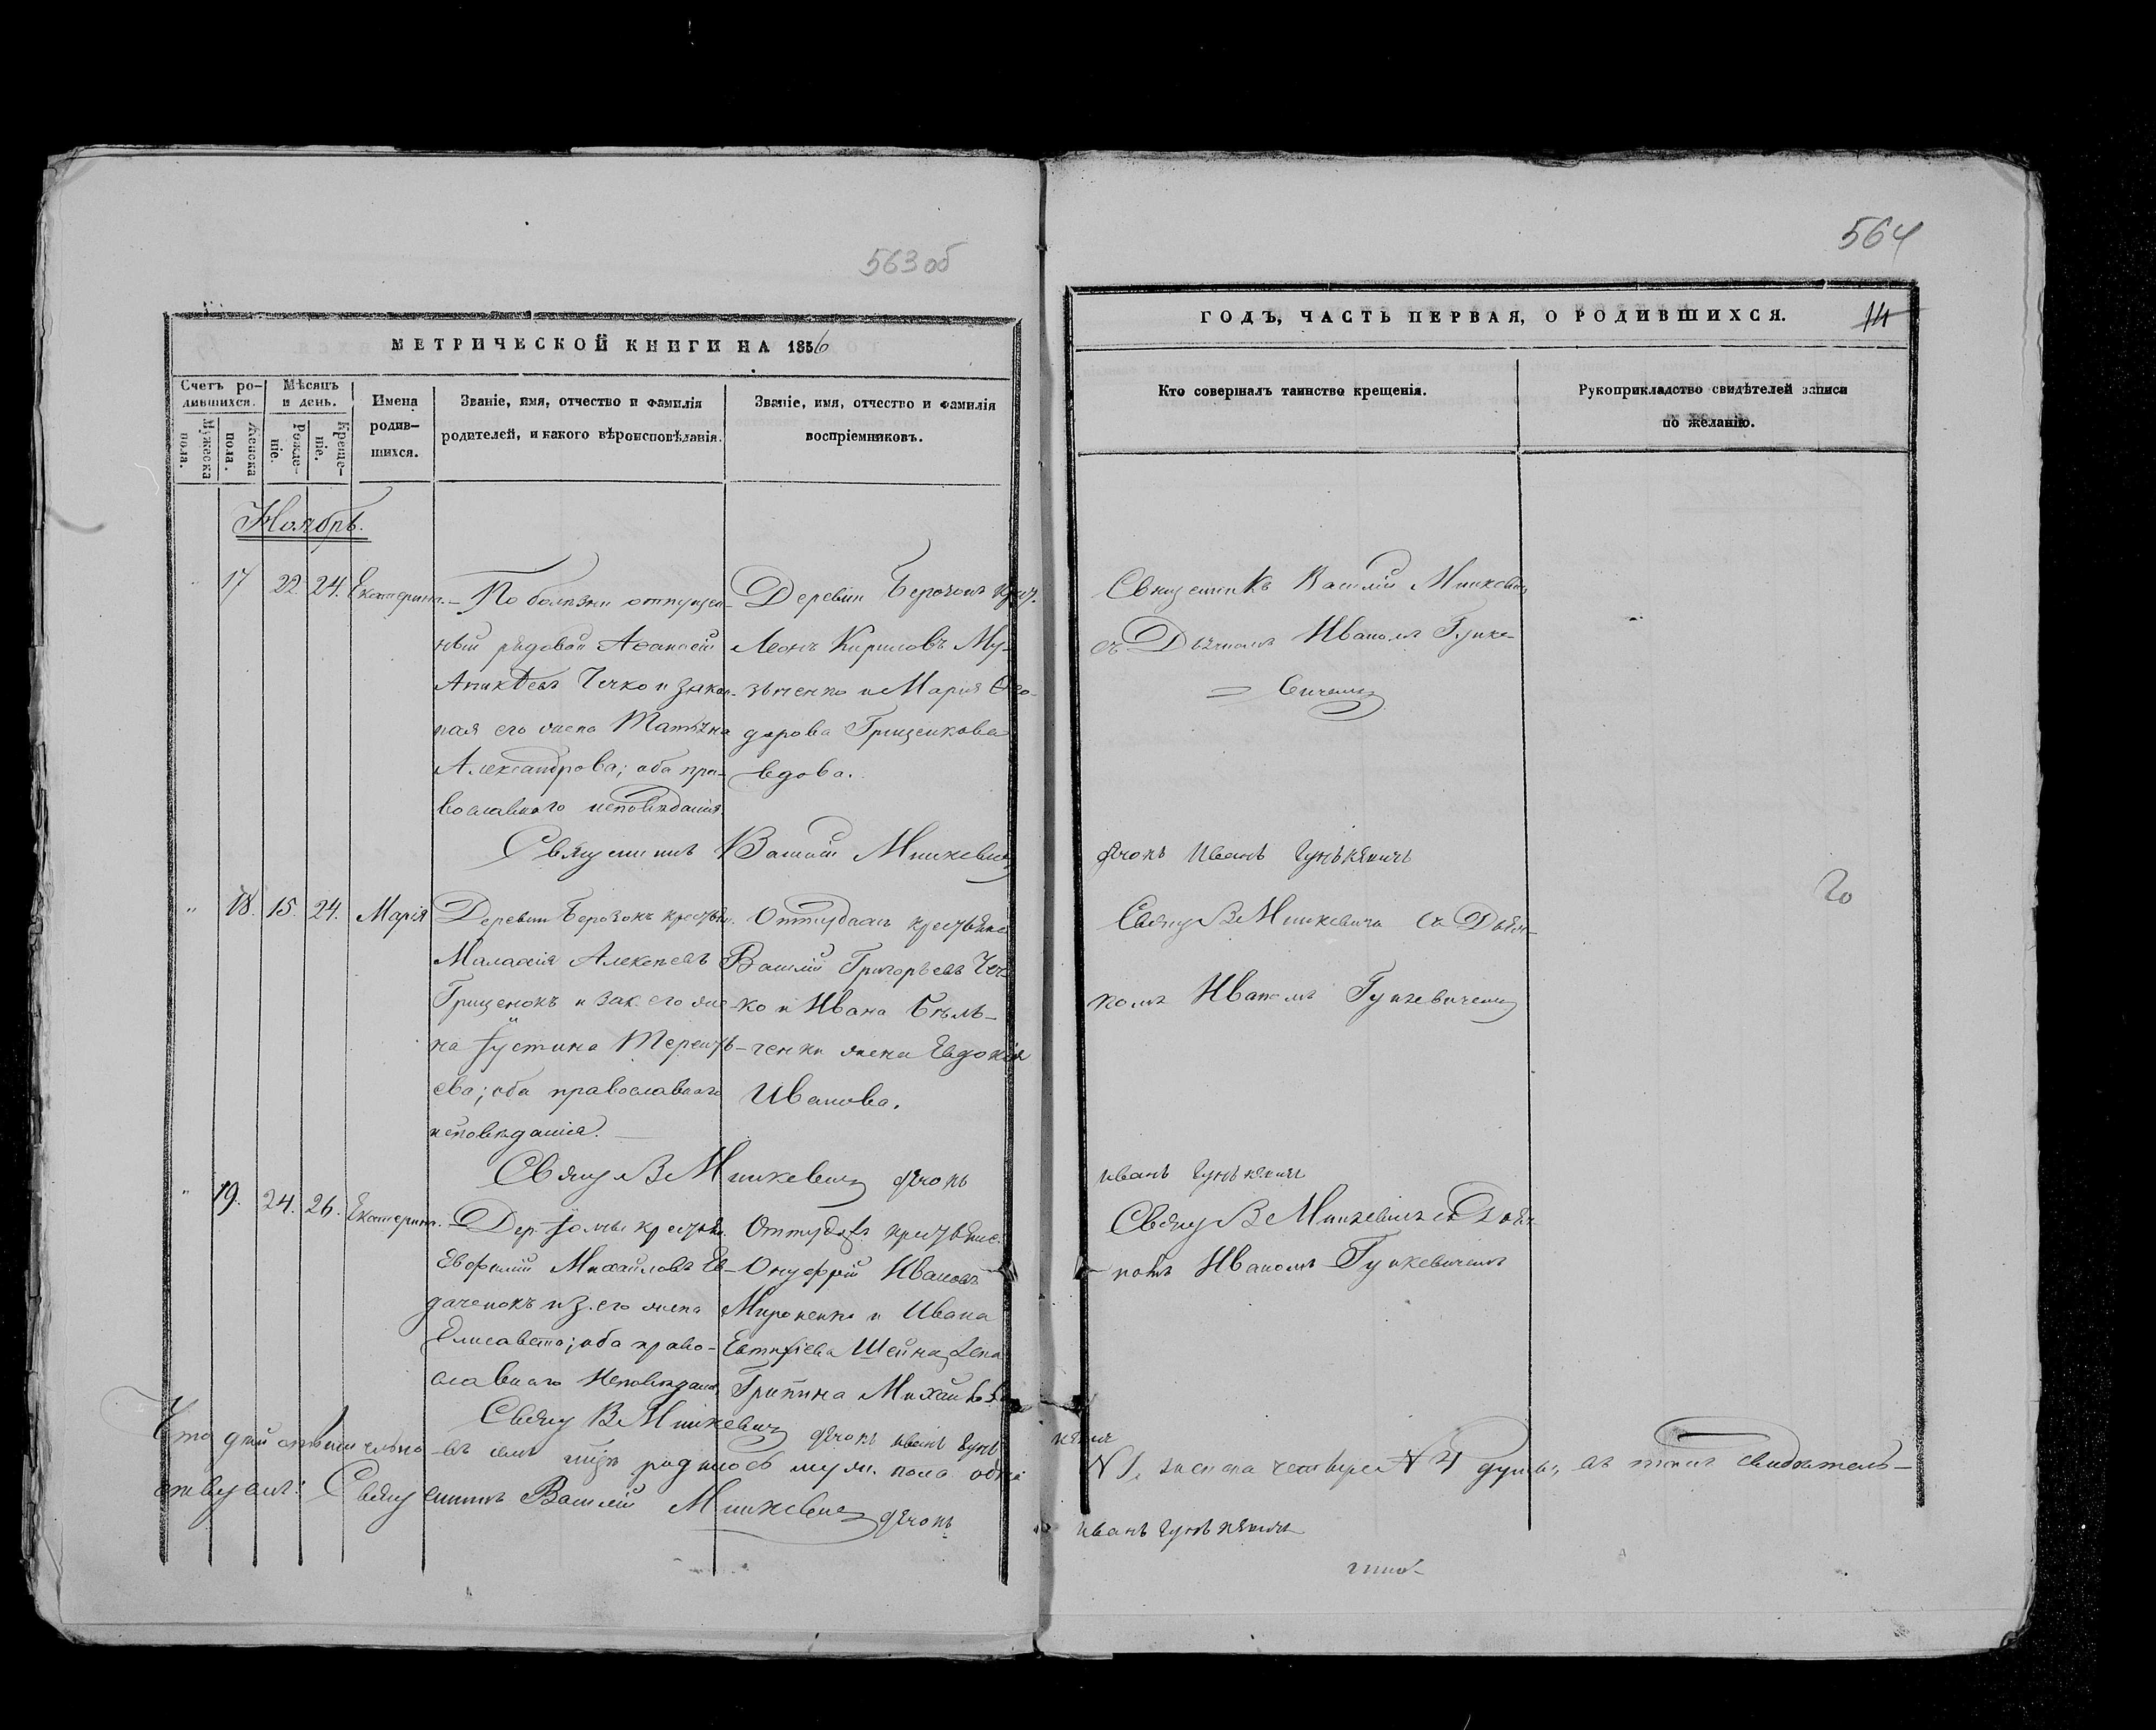 563 об
МЕТРИЧЕСКОЙ КНИГИ НА 1856
Счетъ ро-
дившихся.
Мужеска пола.
Женска пола.
Мѣсяцъ
и день.
Рожде-
ніе.
Креще-
ніе.
Имена
родив-
шихся.
Званіе, имя, отчество и фамилія
родителей, и какого вѣроисповѣданія.
Званіе, имя, отчество и фамилія
воспріемниковъ.
Ноябрь.
17 22 24. Екатерина.
По болѣзни отпущен-
ный рядовой Аѳанасій
Аникѣевъ Чечко и закон-
ная его жена Татьяна
Александрова; оба пра-
вославного исповѣданія.
Деревни Берозокъ крест.
Леонъ Кириловъ Му-
зыченко и Марія Ѳео-
дорова Грищенкова
вдова.
Священникъ Василій Минкевичъ
18. 15. 24. Марія
Деревни Берозокъ крестьян.
Малахія Алексѣевъ
Грищенокъ и зак. его же-
на Іустина Терентъ-
ева; оба православного
исповѣданія.
Оттудажъ крестьяне
Василій Григорьевъ Чеч-
ко и Ивана Бѣль-
ченки жена Евдокія
Иванова.
Свящ В Минкевичъ дячокъ
19. 24. 26. Екатерина.
Дер. крестьян.
Евфимій Михайловъ Ев-
даченокъ и з. его жена
Елисавета; оба право-
славного исповѣдані.
Оттудажъ крестьяне.
Онуфрій Ивановъ
Мироненко и Ивана
Евтихіева Шейна жена
Грипина Михайлова
Свящ В Минкевичъ дячокъ иванъ Гунь
Что дѣйствительно въ семъ родилось муж. пола
ствуемъ: Священникъ Василій Минкевичъ дячокъ
564
ГОДЪ, ЧАСТЬ ПЕРВАЯ, О РОДИВШИХСЯ.
14
Кто совершалъ таинство крещенія.
Рукоприкладство свидѣтелей записи
по желанію.
Священникъ Василій Минкевичъ
съ Дьячкомъ Иваномъ Гунке-
вичемъ
дячокъ Иванъ Гунькевичъ
20
Свящ В Минкевичъ съ Дьяч-
комъ Иваномъ Гункевичемъ
иванъ Гунькевичъ
Свящ В Минкевичъ съ Дьяч-
комъ Иваномъ Гункевичемъ
кевичъ
женска четыре № 4 души, въ томъ свидѣтель-
иванъ Гунькевичъ